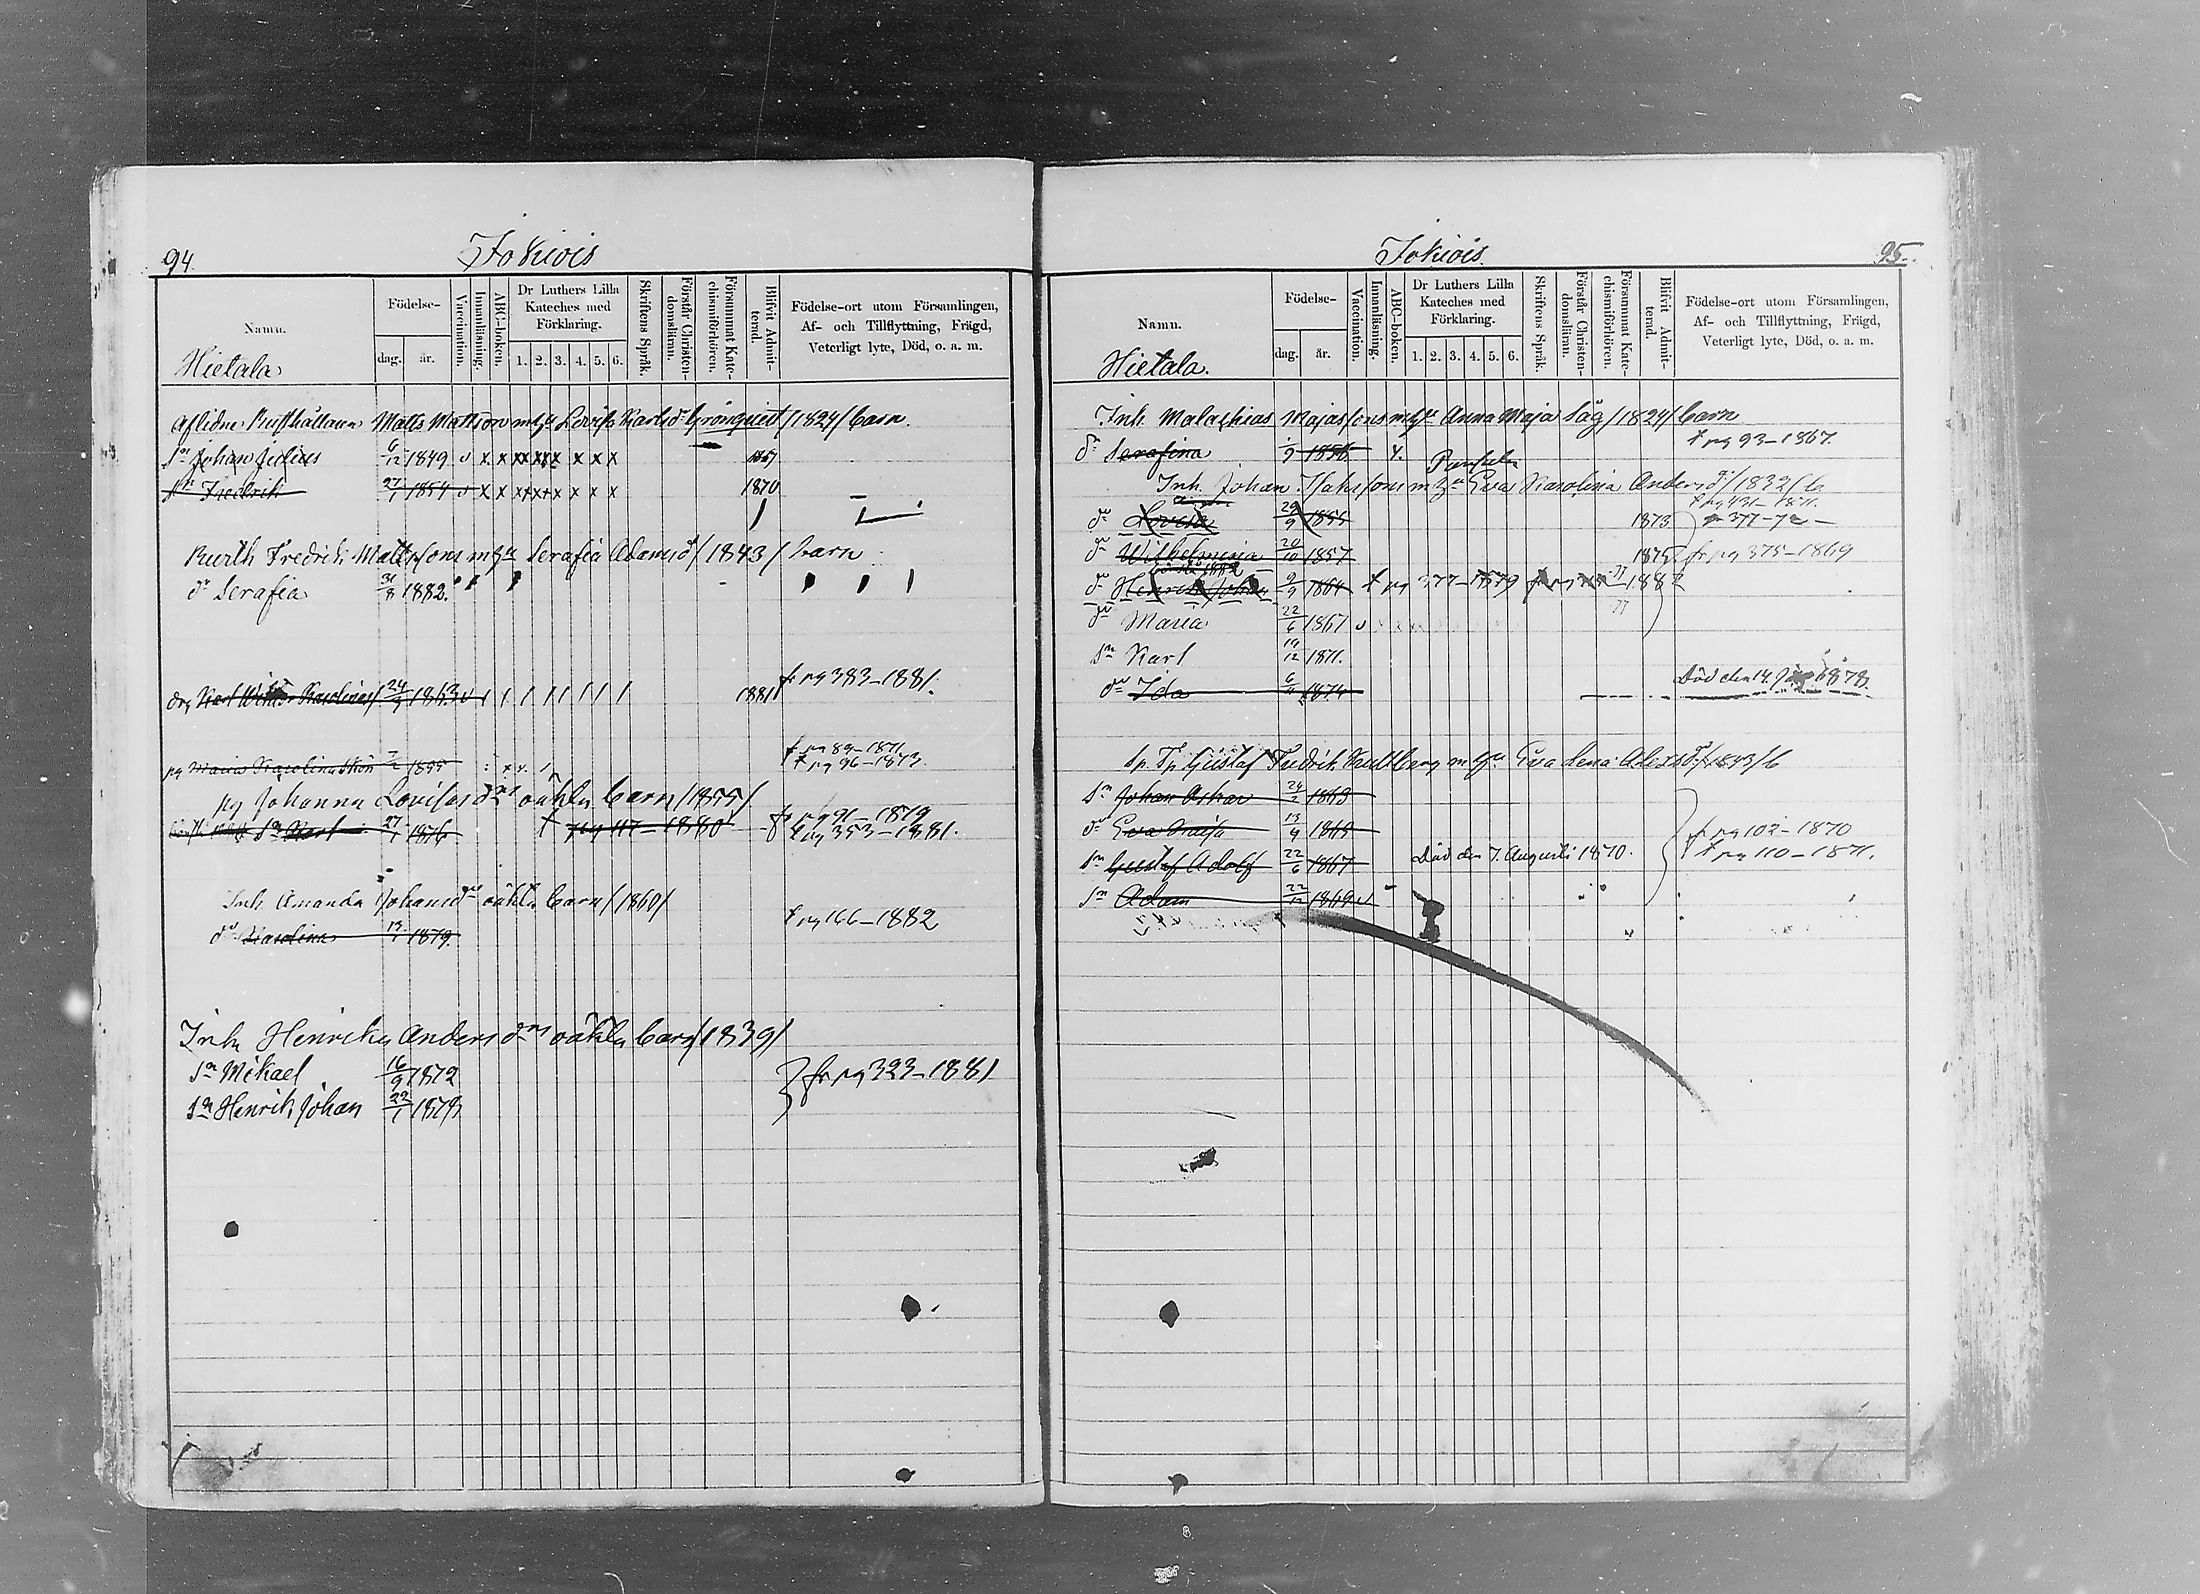 94.
Jokiois
Namn.
Födelse-
dag.
år.
Vaccination.
Innanläsning.
ABC-boken.
Dr Luthers Lilla
Kateches med
Förklaring.
1. 2. 3. 4. 5. 6.
Skriftens Språk.
Förstår Christen-
domsläran.
Försummat Kate-
chismiförhören.
Blifvit Admit-
terad.
Födelse-ort utom Församlingen,
Af- och Tillflyttning, Frägd,
Veterligt lyte, Död, o. a. m.
Hietala
Aflidne Rusthållaren Matts Mattsson m hu Lovisa Karlsdr Grönqvist /1824/ barn.
Sn Johan Julius 6/12 1849 v x x x x x x x x x 1867
Sn Fredrik 27/1 1854 v x x x x x x x x x 1870
Rusth Fredrik Mattssons m hu Serafia Adamsdr /1843/ barn
dr Serafia 31/8 1882.
Karl Karolinas 24/9 1863 v 1881 fr pg 383-1881.
pg Maria Karolina 1855 x x t pg 89-1871
t pg 96-1873.
pg Johanna Lovisas drs oäkta barn /1855/
Sn Karl 27/1 1876 t pg 117-1880 fr pg 91-1879
t pg 353-1881.
Inh Amanda Johansdrs oäkta barn /1860/
dr Karolina 13/1 1879. t pg 166-1882
Inh Henrika Anders drs oäkta barn /1839/
Sn Mikael 16/9 1872 } fr pg 323-1881
Sn Henrik Johan 22/1 1879
Jokiois.
95.
Namn.
Födelse-
dag.
år.
Vaccination.
Innanläsning.
ABC-boken.
Dr Luthers Lilla
Kateches med
Förklaring.
1. 2. 3. 4. 5. 6.
Skriftens Språk.
Förstår Christen-
domsläran.
Försummat Kate-
chismiförhören.
Blifvit Admit-
terad.
Födelse-ort utom Församlingen,
Af- och Tillflyttning, Frägd,
Veterligt lyte, Död, o. a. m.
Hietala.
Inh. Malachias Majassons m hu Anna Maja Säg /1824/ barn
dr Serafina 1856 x. t pg 93-1867.
Inh. Johan Isakssons m hu Eva Karolina Anders dr /1832/ b
t pg 431-1871.
dr Lovisa 29/9 1855 1873 377-72
dr Wilhelmina 20/10 1857 1875. fr pg 375-1869
dr Henrik Johan 9/9 1864 t pg 377-1879 1882
dr Maria 22/6 1867 v
Sn Karl 19/12 1871.
dr Ida 1874 Död den 14 1878.
Gustaf Fredrik Kullberg m hu Eva Lena Alexsdr /1843/ b
Sn Johan Oskar 24/2 1863
dr Eva 13/4 1865 fr pg 102-1870
Sn Gustaf Adolf 22/6 1867 Död den 7. Augusti 1870. t pg 110-1871.
Sn Adam 22/12 1869 v